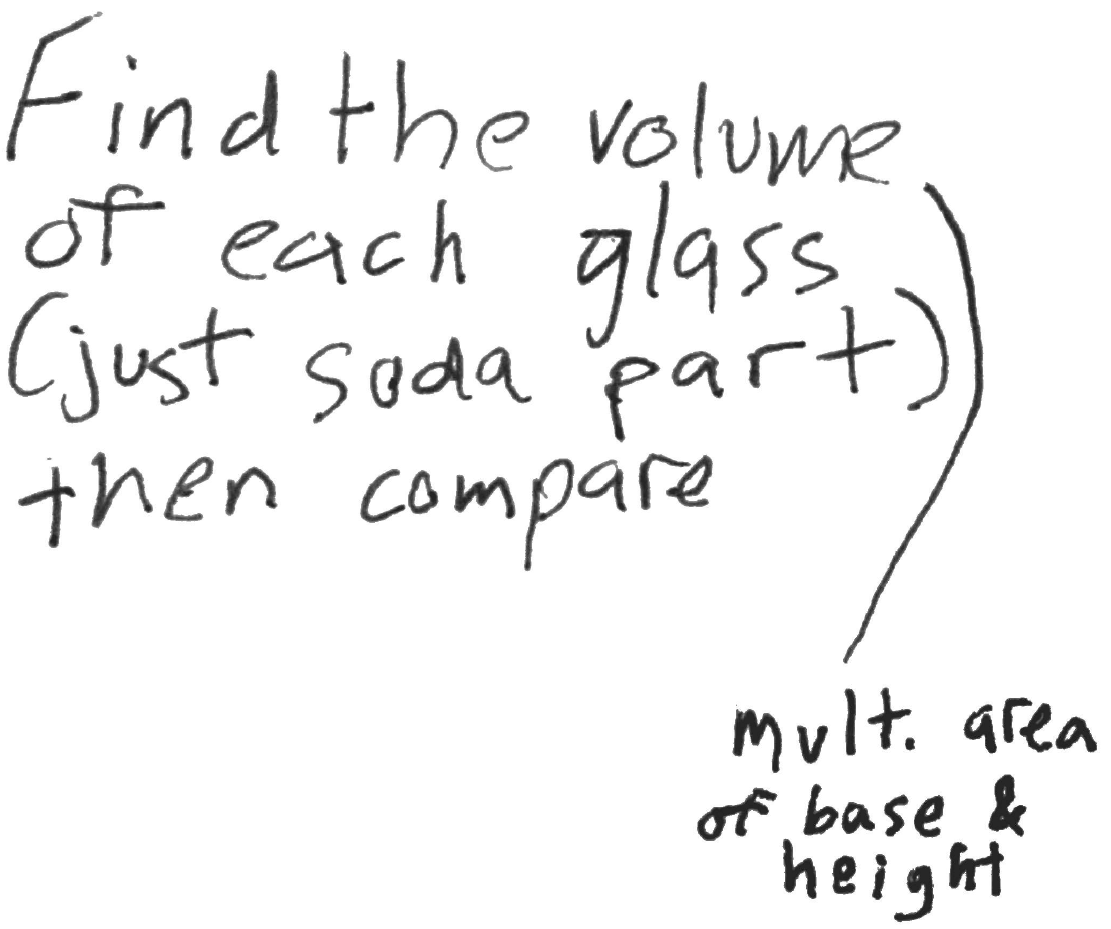 Find the volume
of each glass
(just soda part)
then compare
mult. area
of base &
height